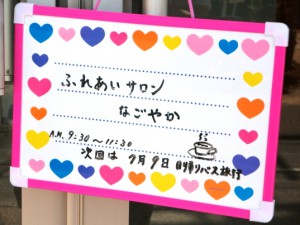 ふれあいサロン
なごやか
A.M. 9:30〜11:30
次回は 9月9日 日帰りバス旅行